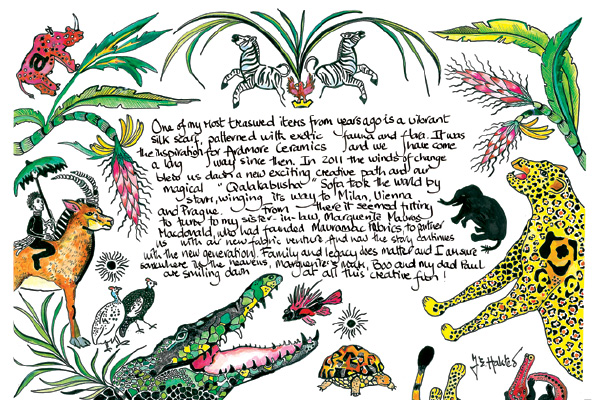 One of my most treasured items from years ago is a vibrant
silk scarf, patterned with exotic fauna and flora. It was
the inspiration for Ardmore Ceramics and we have come
a long way since then. In 2011 the winds of change
blew us down a new exciting creative path and our
magical "Qalakabusha" Sofa took the world by
storm, winging its way to Milan, Vienna
and Prague. From there it seemed fitting
to turn to my sister-in-law, Marguerite
Macdonald, who had founded Mavromac Fabrics, to partner
us with our new fabric venture. And now the story continues
with the new generation. Family and legacy does matter and I am sure
somewhere in the heavens, Marguerite's Mark, Boo and my dad Paul
are smiling down at all this creative fun!
a